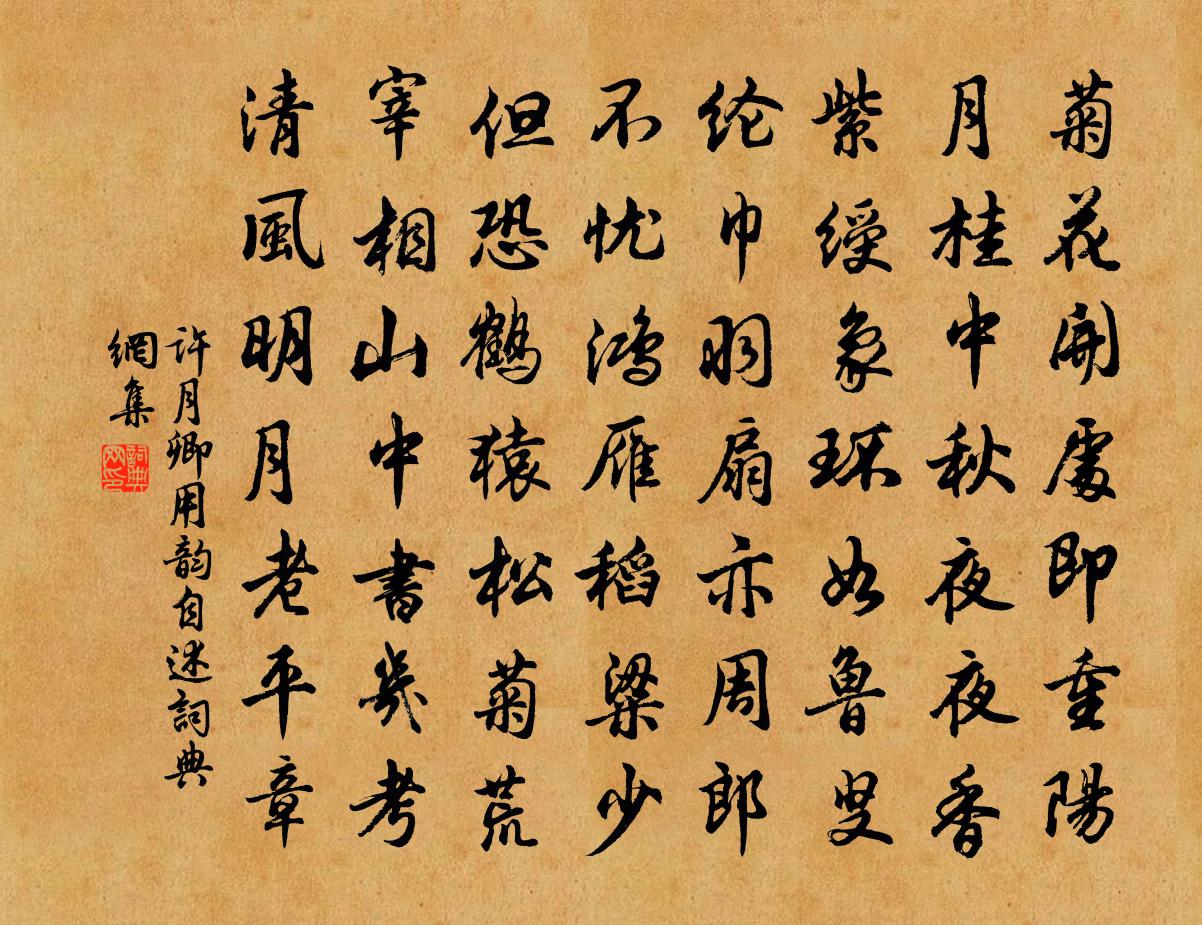 菊花開處即重陽
月桂中秋夜夜香
紫綬象环如魯叟
纶巾羽扇亦周郎
不忧鴻雁稻粱少
但恐鶴猿松菊荒
宰相山中書幾考
清風明月老平章
許月卿用韵自述詞典
網集
詞典
网印